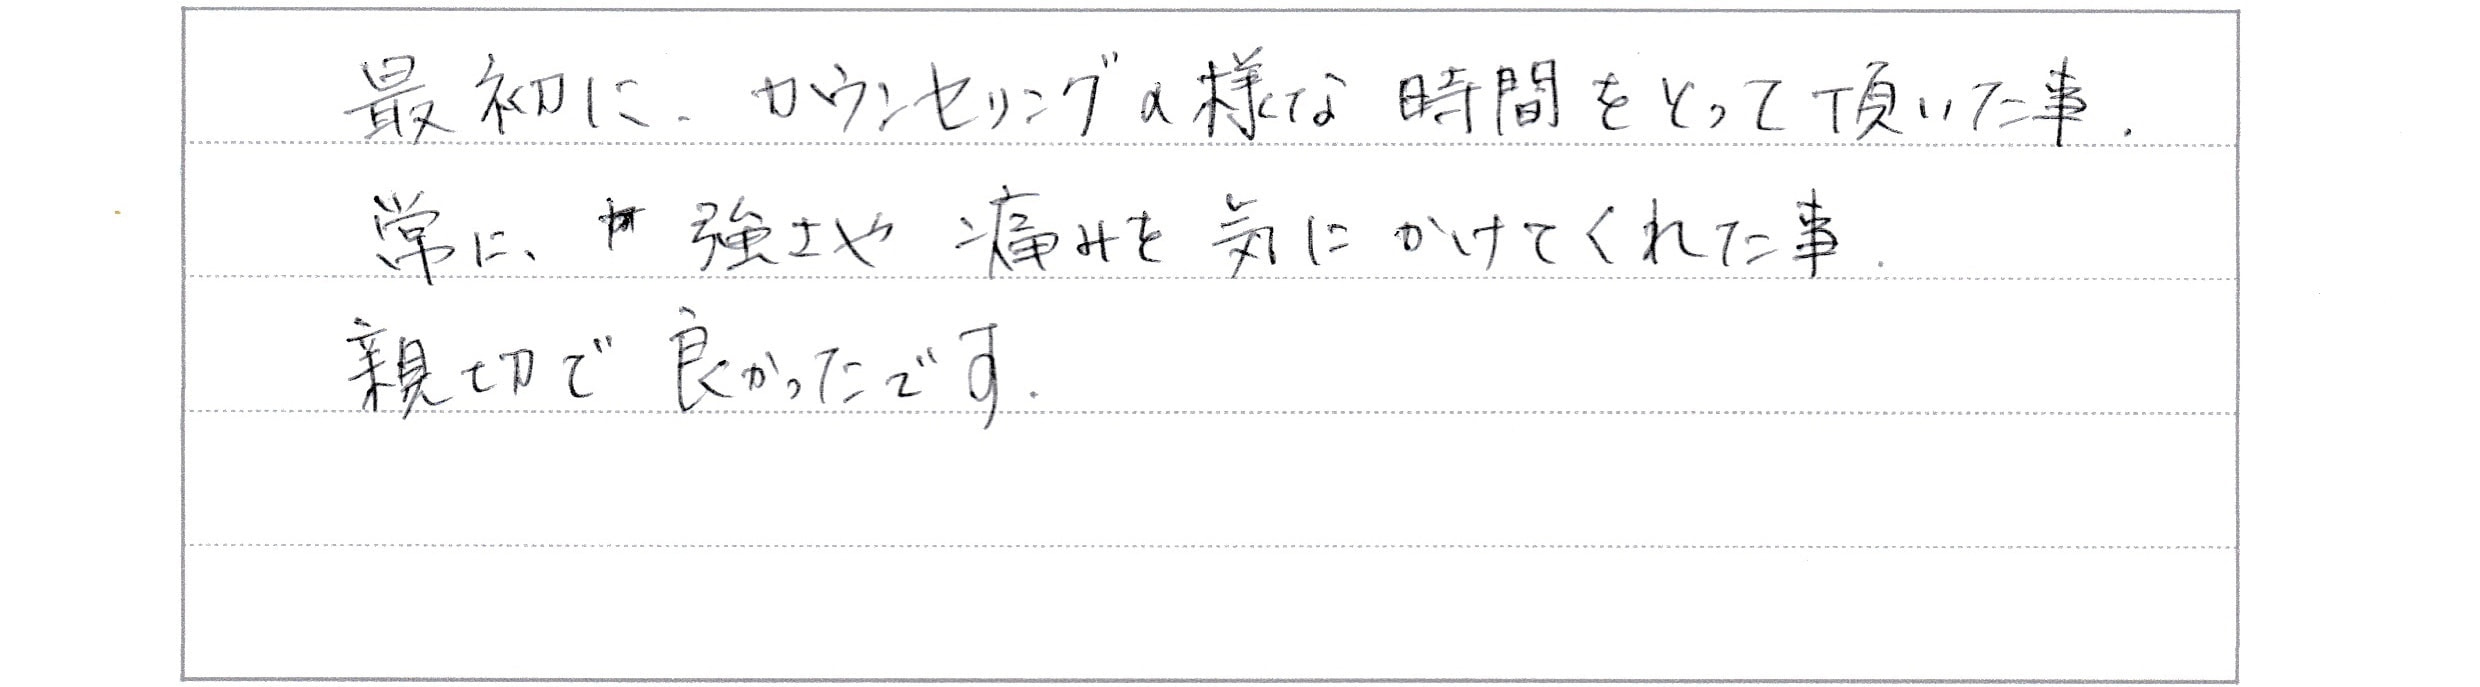 最初に、カウンセリングの様な時間をとって頂いた事.
常に、強さや痛みを気にかけてくれた事.
親切で良かったです.